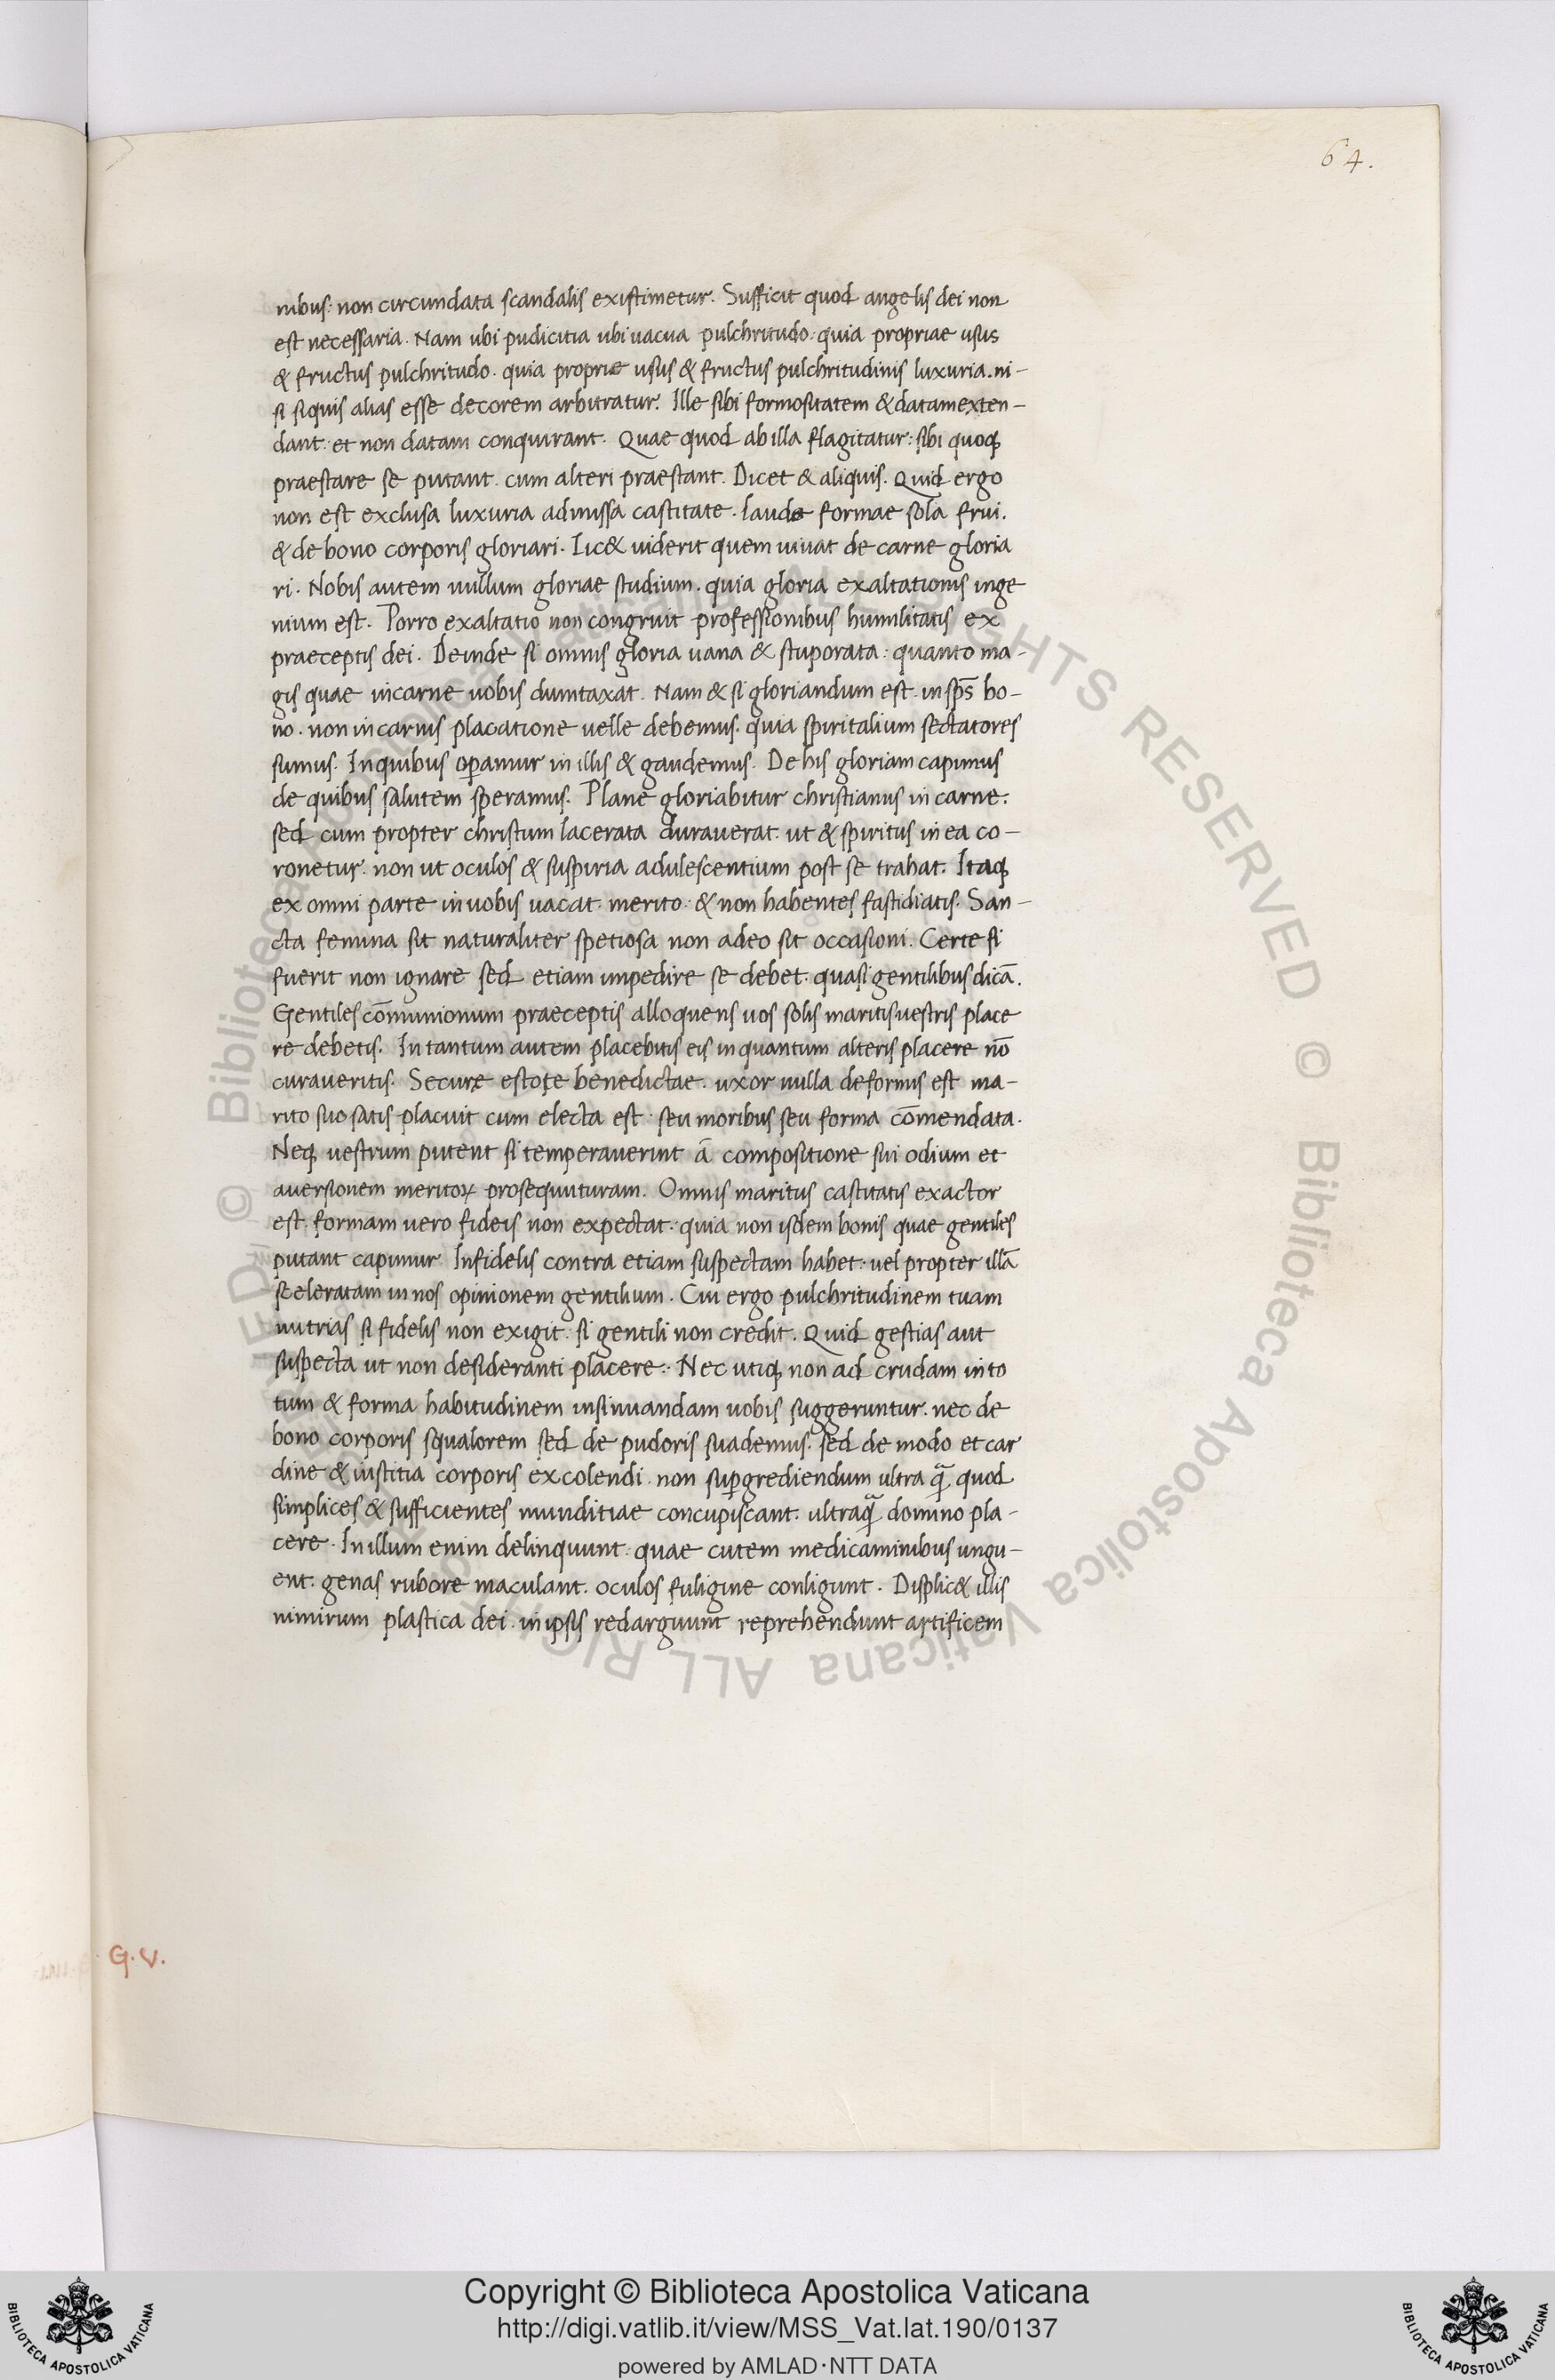 64.
nibus: non circundata scandalis existimetur. Sufficit quod angelis dei non
est necessaria. Nam ubi pudicitia ubi vacua pulchritudo: quia propriae usus
& fructus pulchritudo. quia proprie usus & fructus pulchritudinis luxuria. ni-
si siquis alias esse decorem arbitratur. Ille sibi formositatem & datam exten-
dant: et non datam conquirant. Quae quod ab illa flagitatur: sibi quoq
praestare se putant. cum alteri praestant. Dicet & aliquis. Quid ergo
non est exclusa luxuria admissa castitate. laude formae sola frui.
& de bono corporis gloriari. Lic& viderit quem iuvat de carne gloria
ri. Nobis autem nullum gloriae studium. quia gloria exaltationis inge
nium est. Porro exaltatio non congruit professionibus humilitatis ex
praeceptis dei. Deinde si omnis gloria uana & stuporata: quanto ma-
gis quae in carne uobis dumtaxat. Nam & si gloriandum est. in sp̄s bo-
no. non in carnis placatione uelle debemus. quia spiritalium sectatores
sumus. In quibus operamur in illis & gaudemus. De his gloriam capimus
de quibus salutem speramus. Plane gloriabitur christianus in carne:
sed cum propter christum lacerata duraverat. ut & spiritus in ea co-
ronetur. non ut oculos & suspiria adulescentium post se trahat. Itaq
ex omni parte in uobis vacat. merito. & non habentes fastidiatis. San-
cta femina sit naturaliter spetiosa non adeo sit occasioni. Certe si
fuerit non ignare sed etiam impedire se debet. quasi gentilibus dicā.
Gentiles cōmunionum praeceptis alloquens uos solis maritis uestris place
re debetis. In tantum autem placebitis eis in quantum alteris placere nō
curaveritis. Secure estote benedictae. uxor nulla deformis est ma-
rito suo satis placuit cum electa est. seu moribus seu forma cōmendata.
Neq vestrum putent si temperaverint ā compositione sui odium et
aversionem meritoꝝ prosequuturam. Omnis maritus castitatis exactor
est. formam uero fideis non expectat. quia non isdem bonis quae gentiles
putant capimur. Infidelis contra etiam suspectam habet: uel propter illā
sceleratam in nos opinionem gentilium. Cui ergo pulchritudinem tuam
nutrias si fidelis non exigit. si gentili non credit. Quid gestias aut
suspecta ut non desideranti placere. Nec utiq non ad crudam in to
tum & forma habitudinem insinuandam uobis suggeruntur. nec de
bono corporis squalorem sed de pudoris suademus. sed de modo et car
dine & iustitia corporis excolendi. non supergrediendum ultra q̄ quod
simplices & sufficientes munditiae concupiscant. ultraq̄ domino pla-
cere. In illum enim delinquunt: quae cutem medicaminibus ungu-
ent. genas rubore maculant. oculos fuligine conligunt. Displic& illis
nimirum plastica dei. in ipsis redarguunt reprehendunt artificem
G. V.
© Biblioteca Apostolica Vaticana ALL RIGHTS RESERVED © Biblioteca Apostolica Vaticana ALL RIGHTS RESERVED
Copyright © Biblioteca Apostolica Vaticana
http://digi.vatlib.it/view/MSS_Vat.lat.190/0137
powered by AMLAD·NTT DATA
BIBLIOTECA APOSTOLICA VATICANA
BIBLIOTECA APOSTOLICA VATICANA